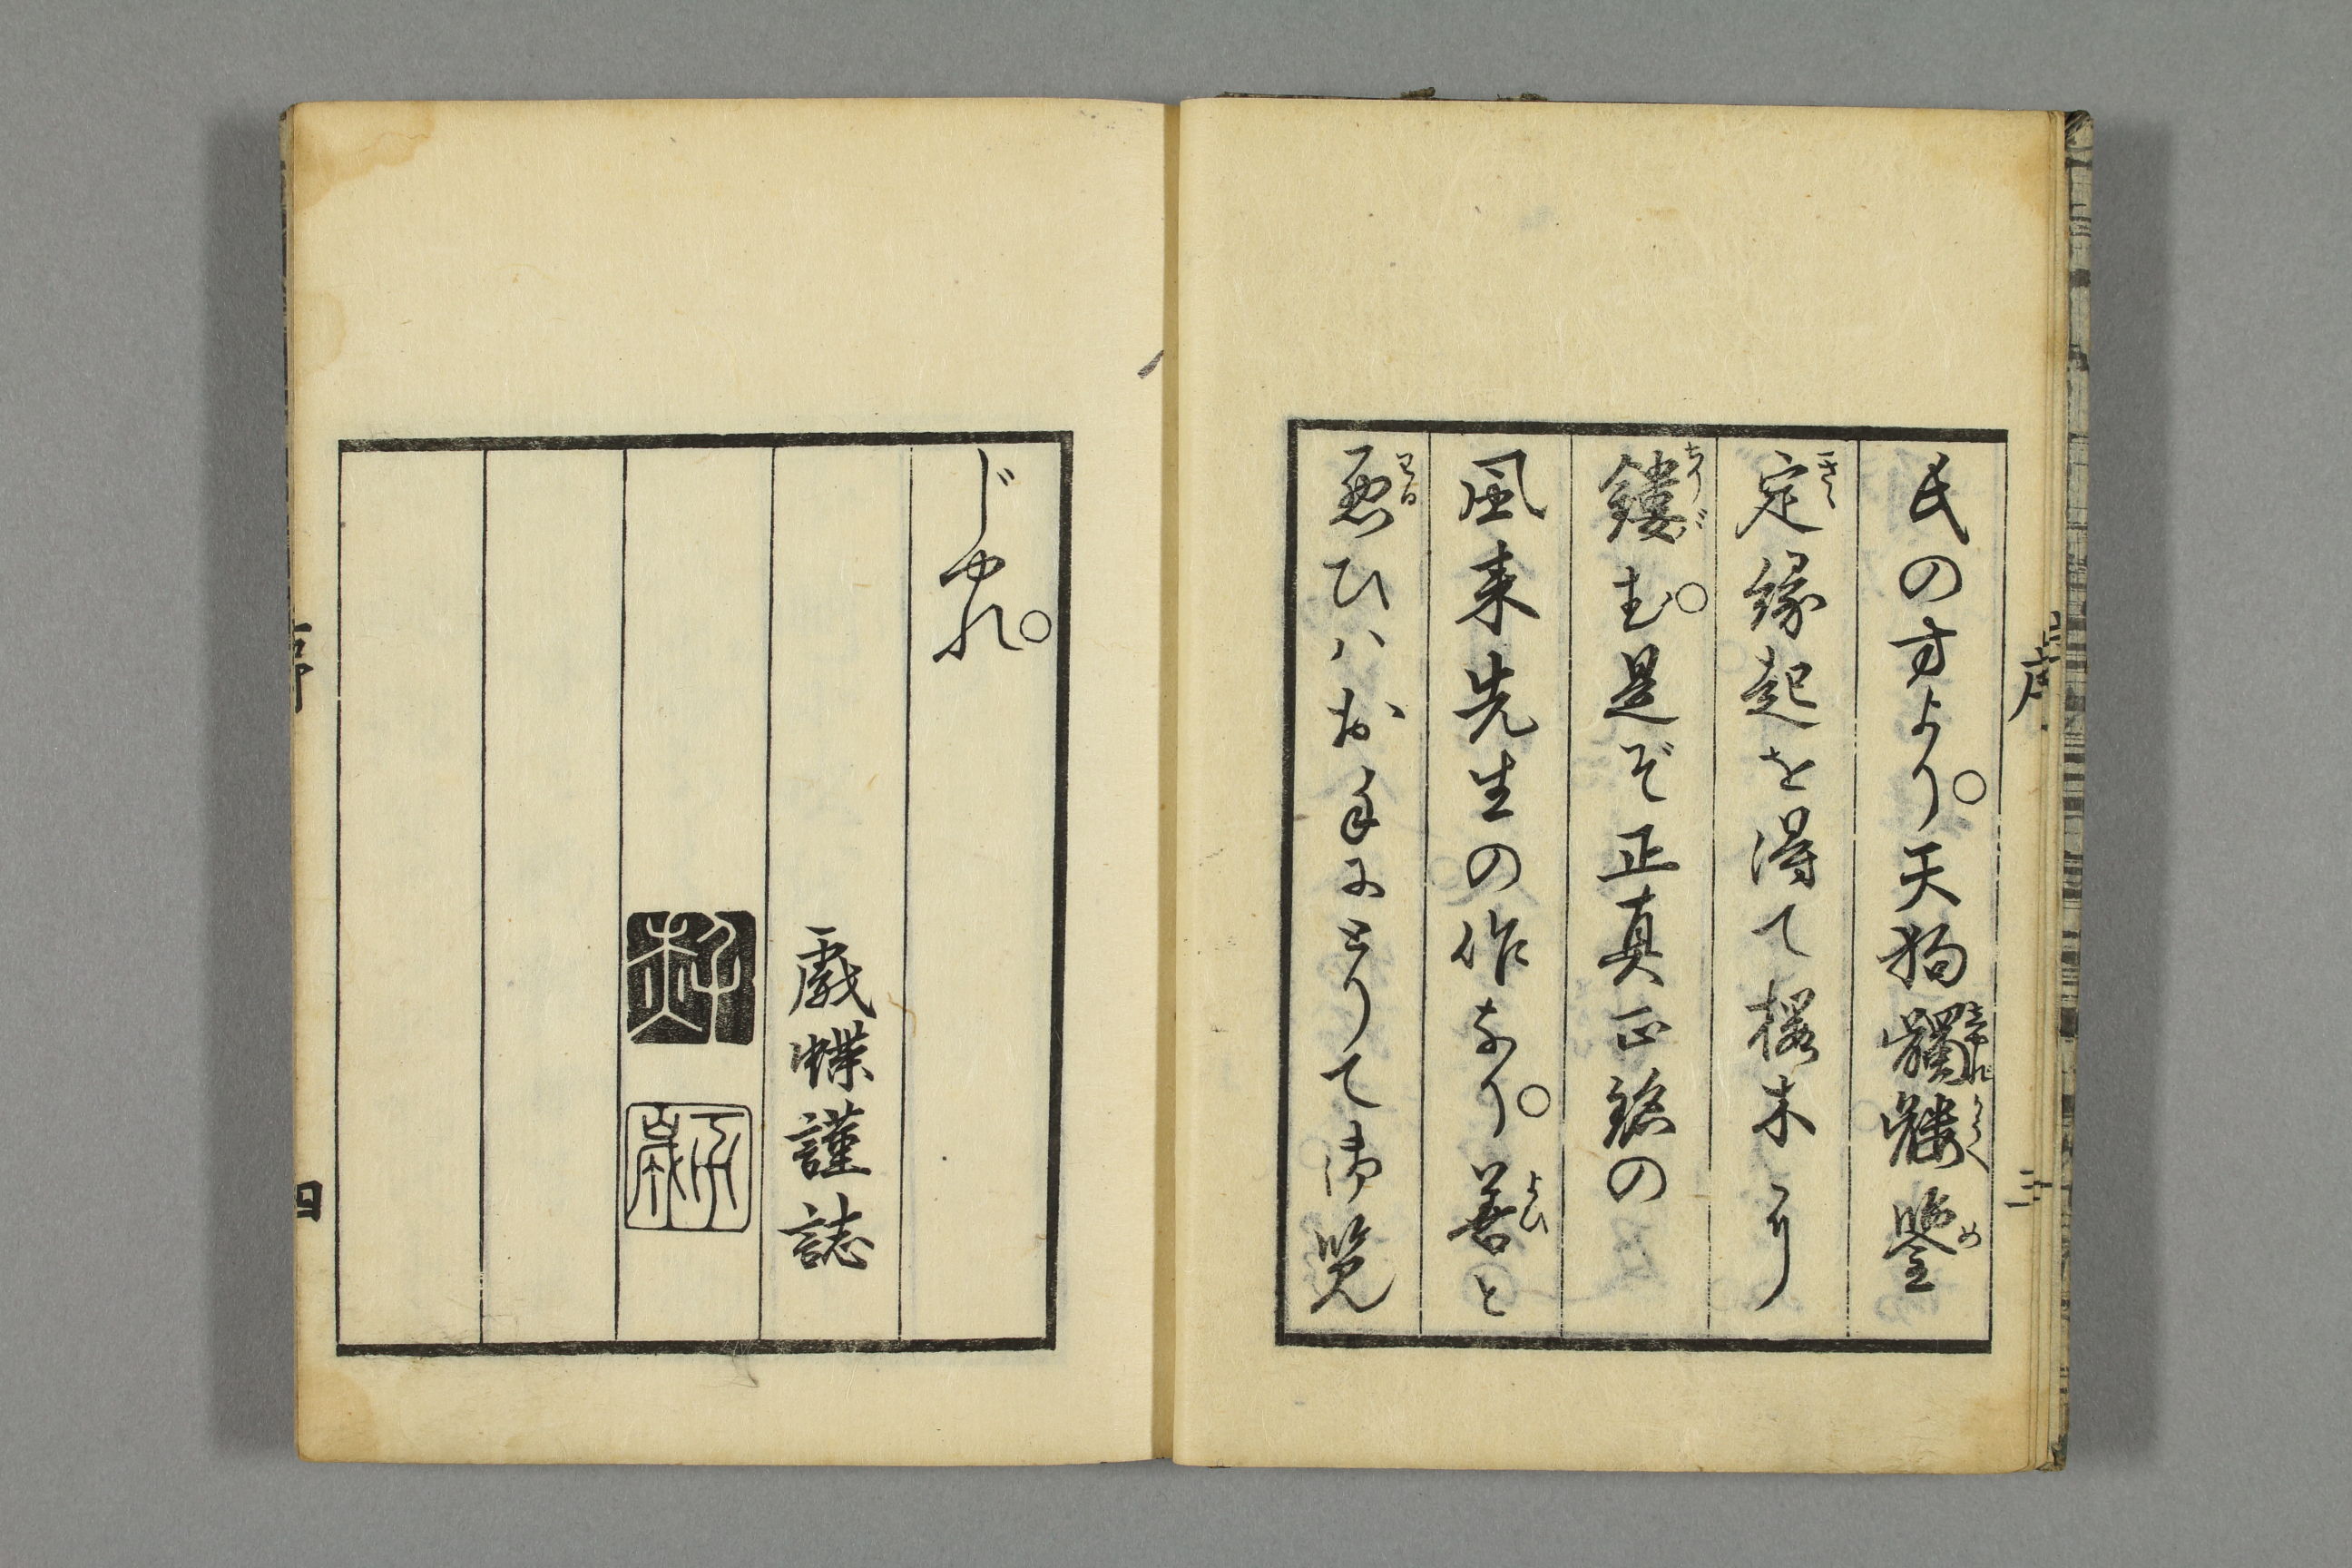 序 三
氏の方より○天狗髑髏鑒
定縁起を得て桜木に
鏤む○是ぞ正真正銘の
風来先生の作なり○善と
悪ひハお手にとりて御覧
じやれ○
戯蝶謹誌
序 四